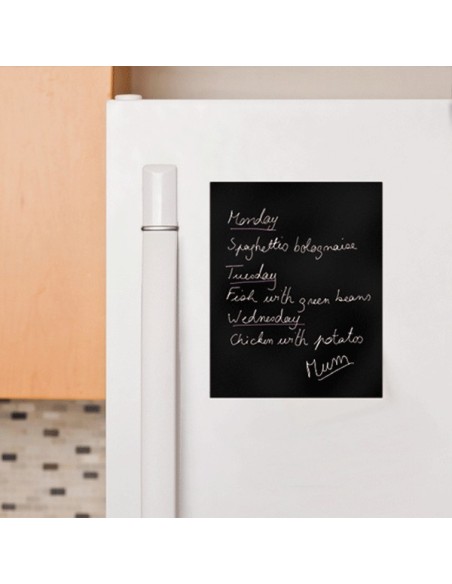 Monday
Spaghettis bolognaise
Tuesday
Fish with green beans
Wednesday
Chicken with potatos
Mum